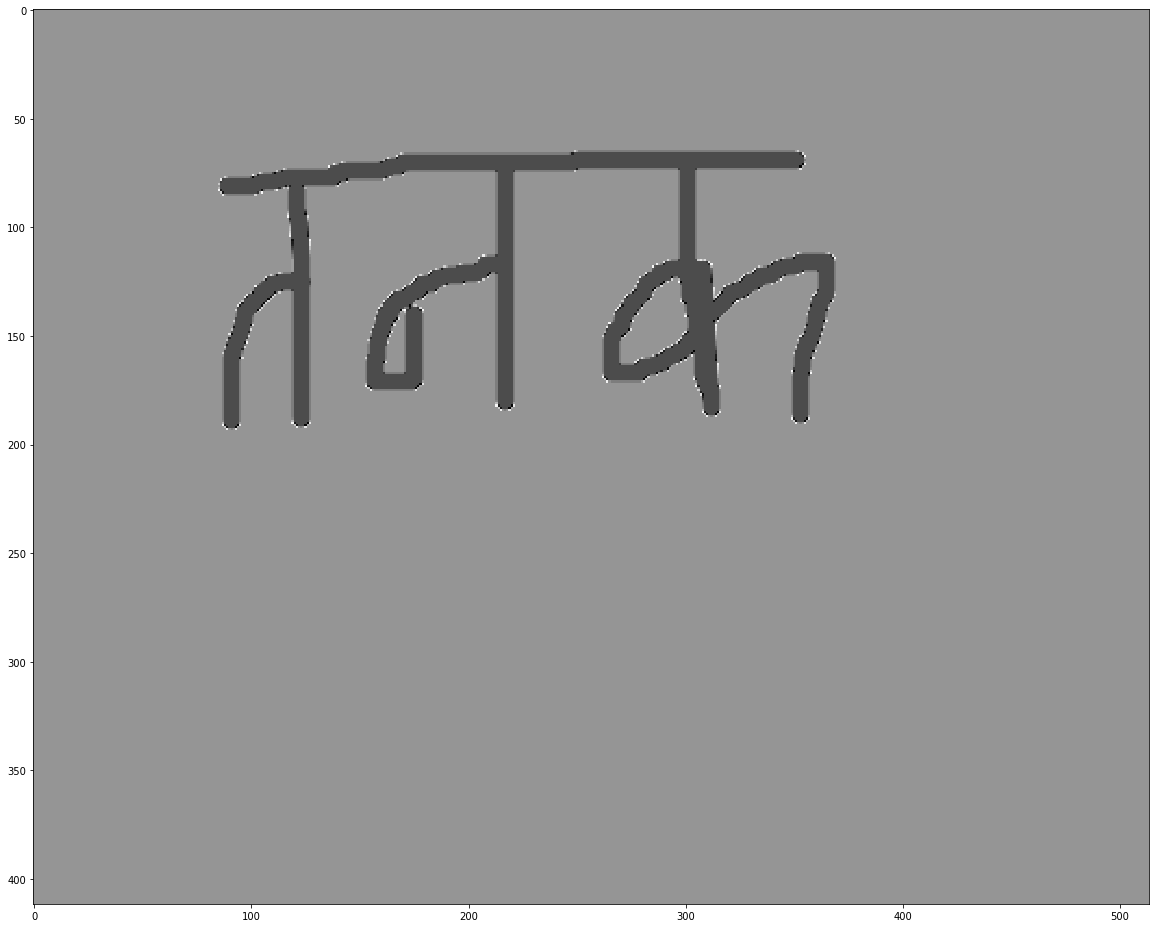 0
50
तनक
100
150
200
250
300
350
400
0 100 200 300 400 500